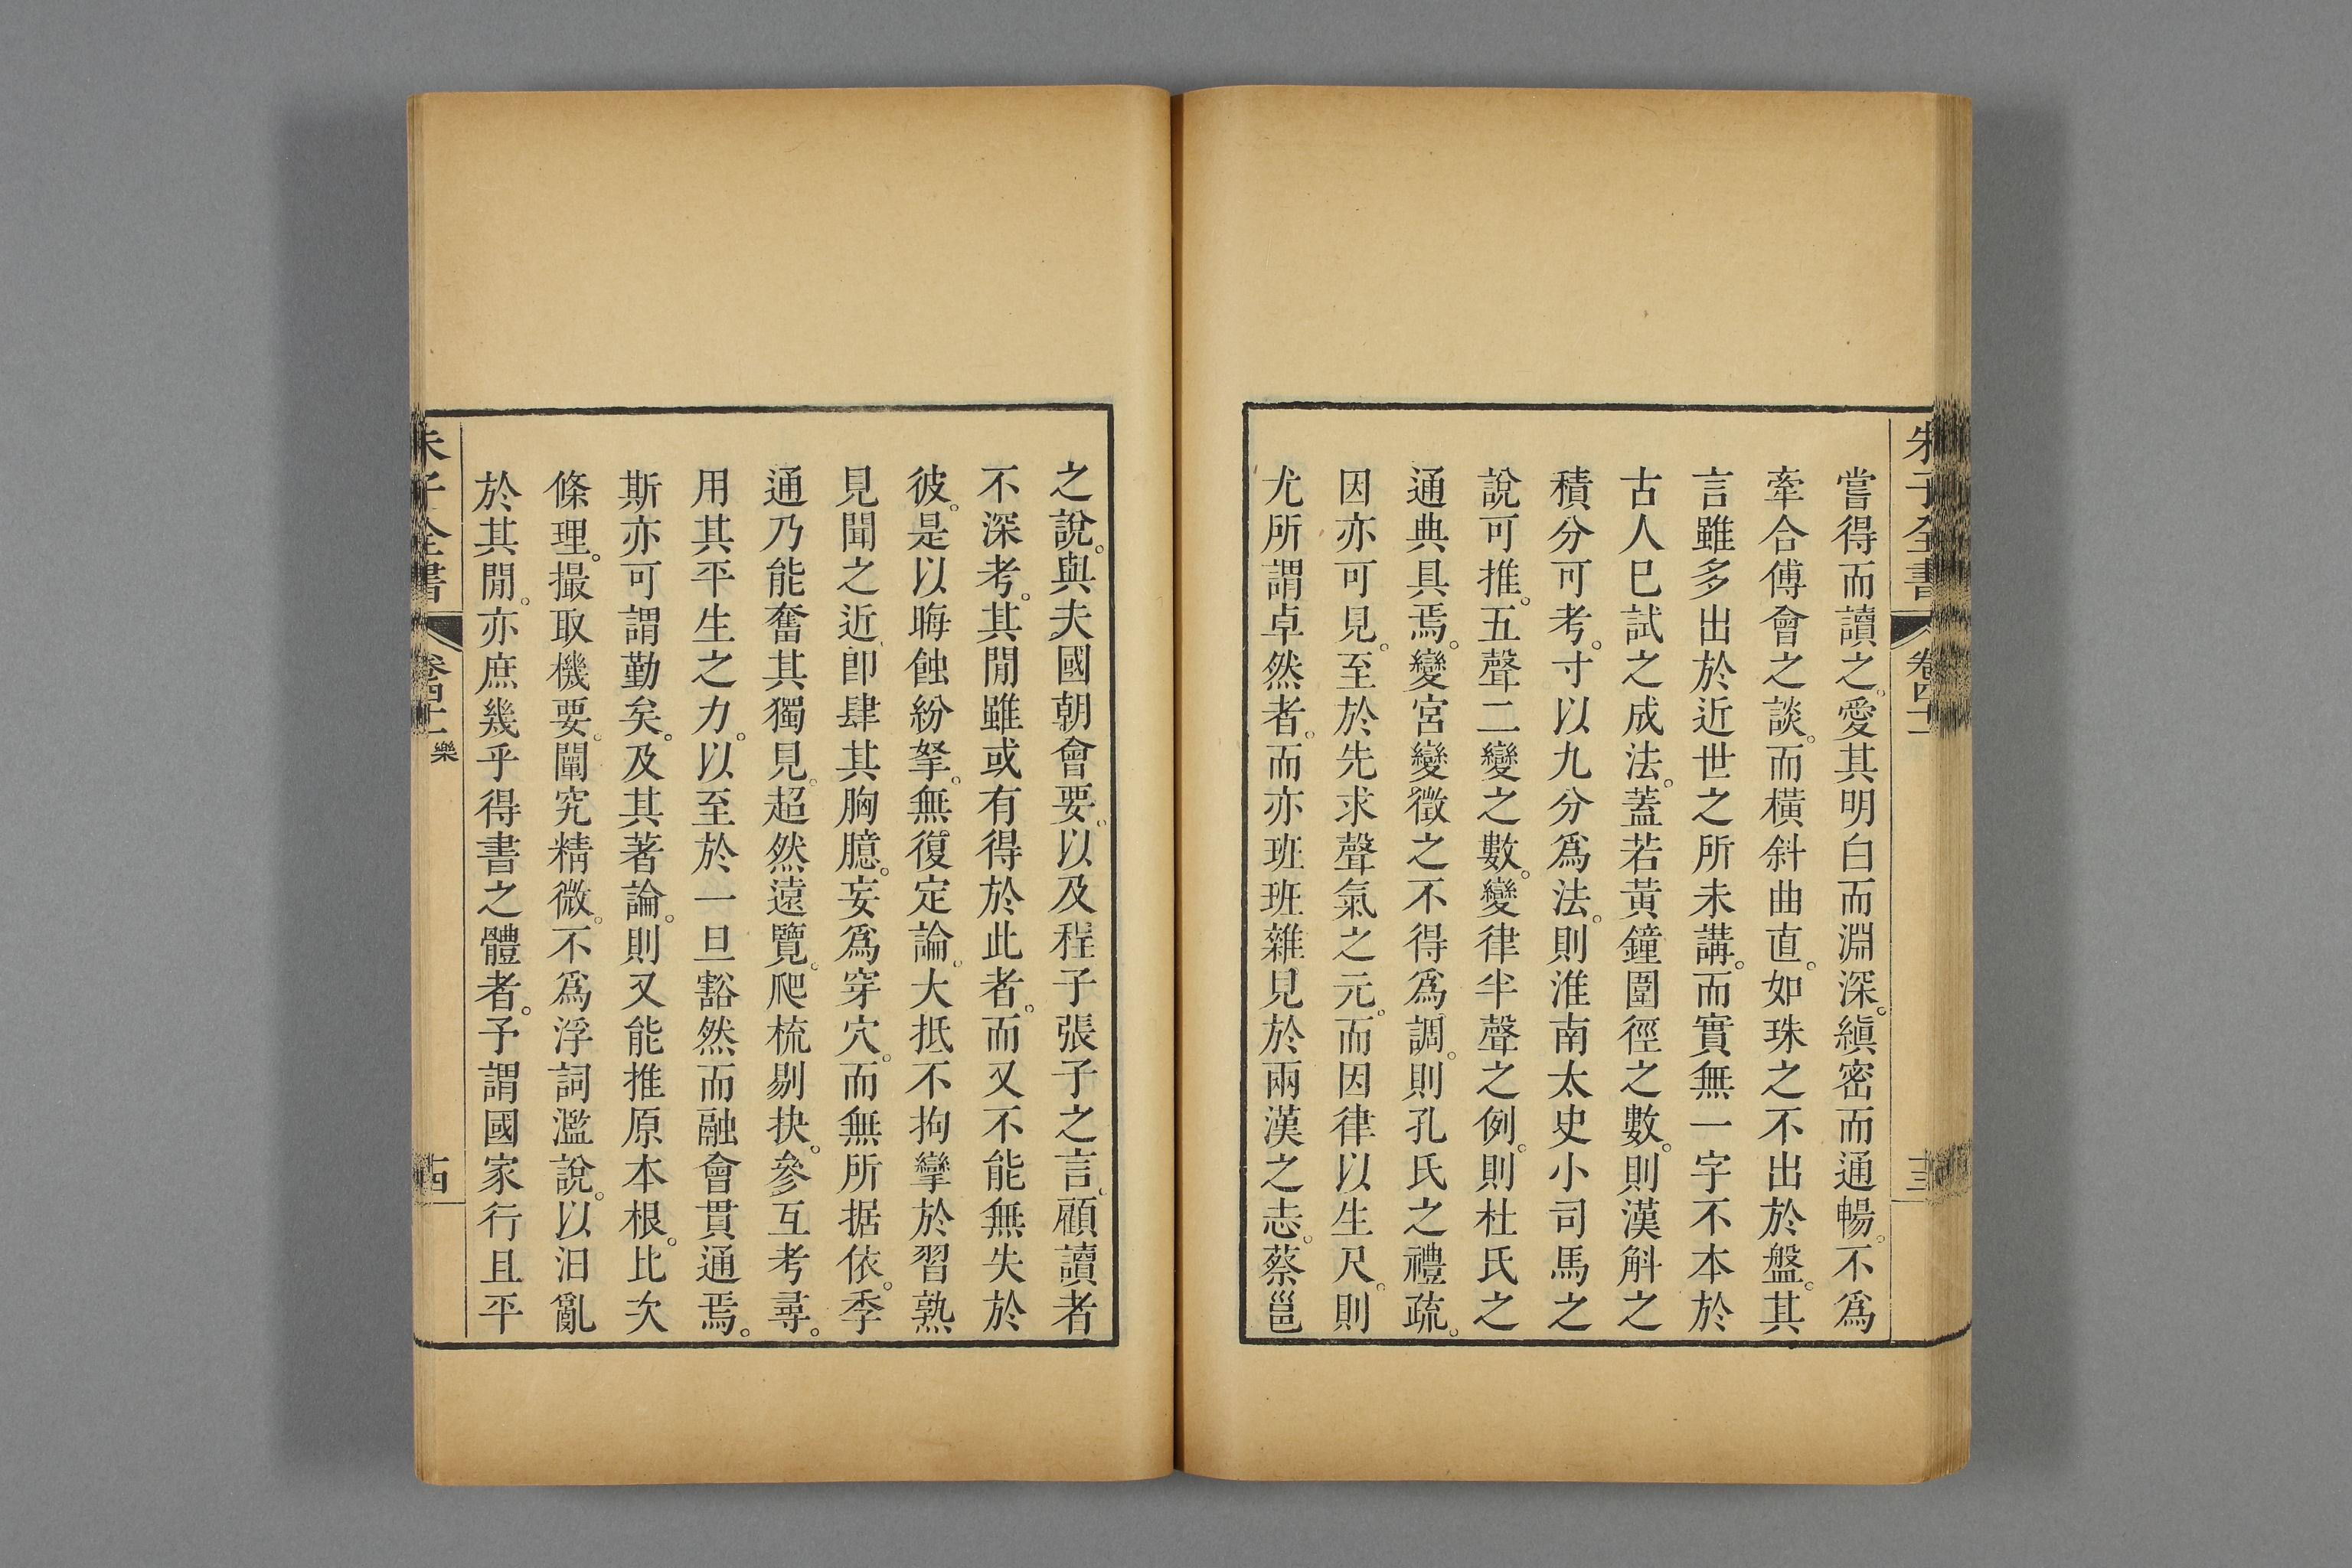 朱子全書 卷四十一 十三
嘗得而讀之。愛其明白而淵深。縝密而通暢。不爲
牽合傅會之談。而橫斜曲直。如珠之不出於盤。其
言雖多出於近世之所未講。而實無一字不本於
古人已試之成法。蓋若黃鐘圍徑之數。則漢斛之
積分可考。寸以九分爲法。則淮南太史小司馬之
說可推。五聲二變之數。變律半聲之例。則杜氏之
通典具焉。變宮變徵之不得爲調。則孔氏之禮疏。
因亦可見。至於先求聲氣之元。而因律以生尺。則
尤所謂卓然者。而亦班班雜見於兩漢之志。蔡邕
之說。與夫國朝會要。以及程子張子之言。顧讀者
不深考。其閒雖或有得於此者。而又不能無失於
彼。是以晦蝕紛拏。無復定論。大抵不拘攣於習熟
見聞之近。卽肆其胸臆。妄爲穿穴。而無所据依。季
通乃能奮其獨見。超然遠覽。爬梳剔抉。參互考尋。
用其平生之力。以至於一旦豁然而融會貫通焉。
斯亦可謂勤矣。及其著論。則又能推原本根。比次
條理。撮取機要。闡究精微。不爲浮詞濫說。以汩亂
於其閒。亦庶幾乎得書之體者。予謂國家行且平
朱子全書 卷四十一 樂 十四